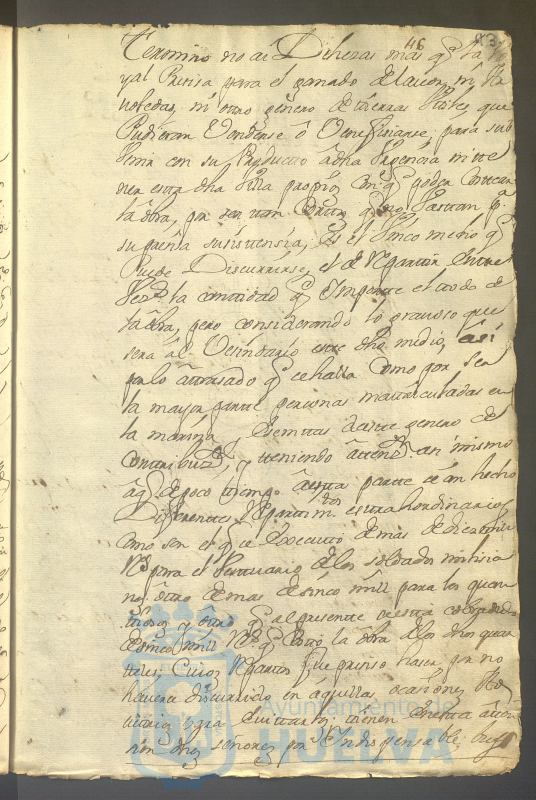 46
termino no ai Dehezas mas q̃ la
yal Presisa para el ganado de lavor, ni
ni otro género de tierras que
Pudieran Venderse ô Venefisiarse, para
con su Producto a dha
nen esta dha Villa propios con q̃ poder Costear
la obra, por ser tan Cortos q̃ no Bastan p.ª
su presisa susistensia, Es el Unico medio q̃
Puede Discurrirse, el de Repartir Entre
la cantidad q̃ Importe el todo de
la obra, pero considerando lo gravoso que
sera al Vecindario este dho medio, asi
por lo atrasado q̃ se halla Como por ser
la mayor parte personas matriculadas en
la marina y Esemtas de este genero de
y teniendo asi mismo
a q̃ de poco tiempo a esta parte se an hecho
Diferentes Repartim.tos extrahordinarios
como son el q̃ se executó de mas de diez mill
R.s para el Vestuario de los soldados milisia
nos otro de mas de sinco mill para los quar
y otro q̃ al presente se esta cobrando
de sinco mill R.s q̃ Costo la obra de los dhos quar
teles, Cuios Repartos fue presiso haser por no
haverse discurrido en aquellas ocasiones
para evitarlos; tienen
dhos señores por Indispensable
Ayuntamiento de
HUELVA